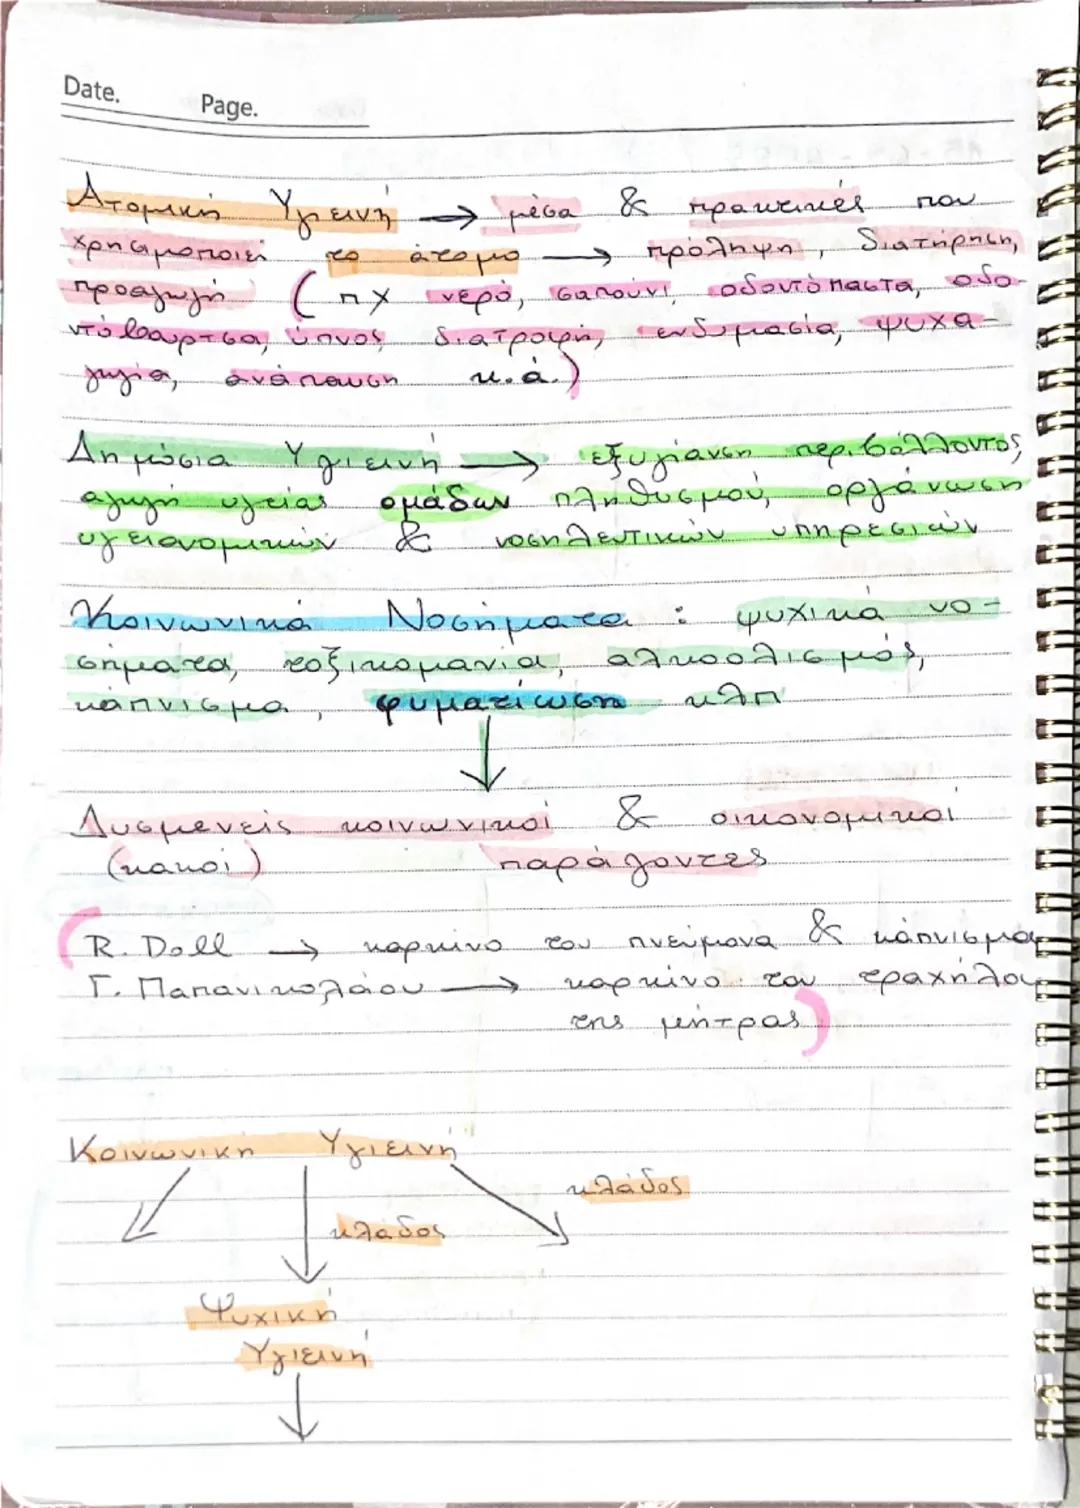 Date.
Page.
Ατομική Υγιεινή → μέσα & πρακτικές που
χρησιμοποιεί το άτομο → πρόληψη, διατήρηση,
προαγωγή (πχ νερό, σαπούνι, οδοντόπαστα, οδο-
ντόβουρτσα, ύπνος, διατροφή, ενδυμασία, ψυχα-
γωγία, ανάπαυση κ.ά.)
Δημόσια Υγιεινή → εξυγίανση περιβάλλοντος,
αγωγή υγείας ομάδων πληθυσμού, οργάνωση
υγειονομικών & νοσηλευτικών υπηρεσιών
Κοινωνικά Νοσήματα : ψυχικά νο-
σήματα, τοξικομανία, αλκοολισμός,
κάπνισμα, φυματίωση κλπ
↓
Δυσμενείς κοινωνικοί & οικονομικοί
(κακοί) παράγοντες
(R. Doll → καρκίνο του πνεύμονα & κάπνισμα
Γ. Παπανικολάου → καρκίνο του τραχήλου
της μήτρας)
Κοινωνική Υγιεινή
κλάδος
κλάδος
Ψυχική
Υγιεινή
↓